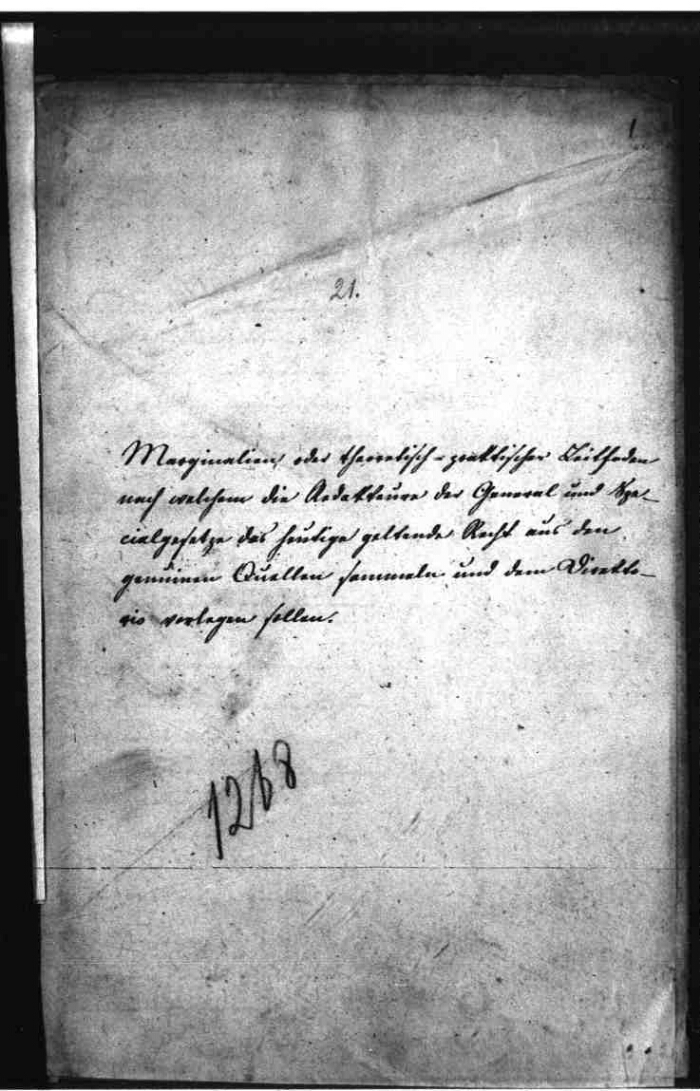 1
21.
Marginalien, oder theoretisch-praktischer Leitfaden
nach welchem die Redakteure der General und Spe-
cialgesetze das heutige geltende Recht aus den
genuinen Quellen sammeln und dem Direkto-
rio vorlegen sollen.
1268